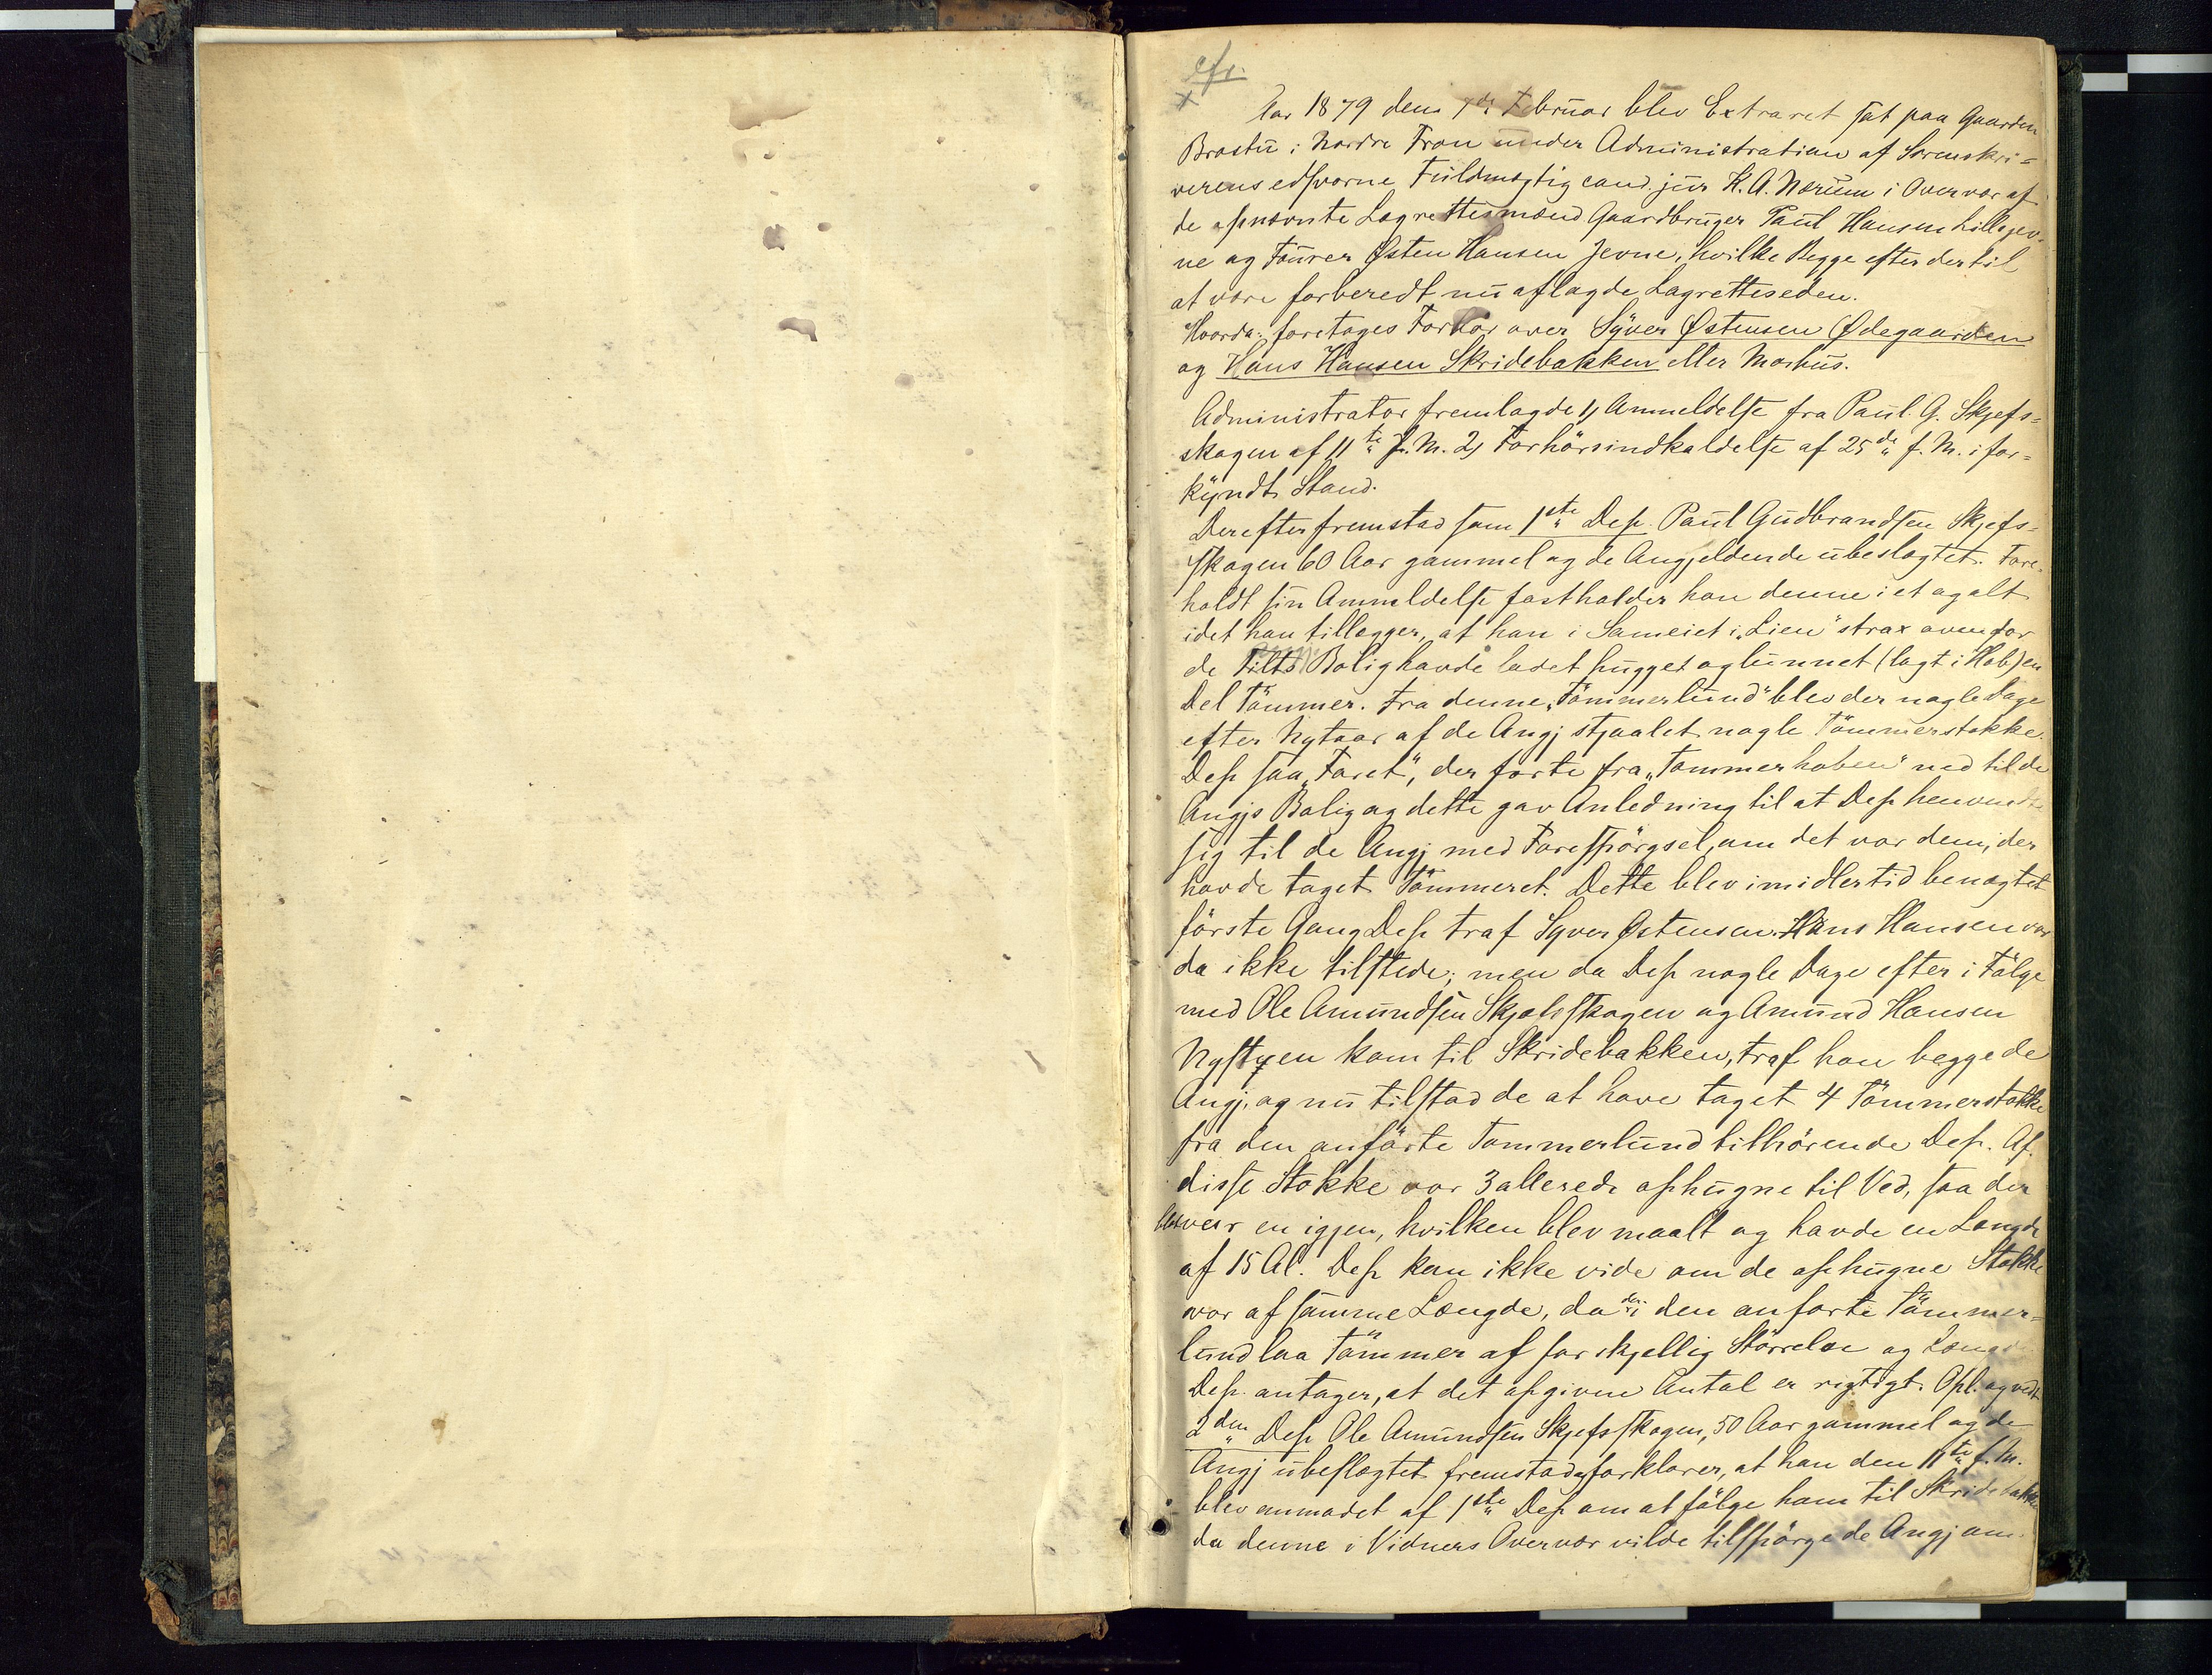 cfr.
x
Aar 1879 den 7de Februar blev Extraret sat paa Gaarden
Brostu i Nordre Fron under Administration af Sorenskri-
verens edsvorne Fuldmægtig cand. jur K. A. Nærum i Overvær af
de opnævnte Lagrettesmænd Gaardbruger Paul Hansen Lillejev-
ne og Fourer Østen Hansen Jevne, hvilke Begge efter dertil
at være forberedt nu aflagde Lagretteseden.
Hvorda: foretages Forhør over Syver Østensen Ødegaarden
og Hans Hansen Skridebakken eller Morhus.
Administrator fremlagde 1, Anmeldelse fra Paul G. Skjefs-
skogen af 11te f. M. 2, Forhörsindkaldelse af 25de f. M. i for-
kyndt Stand.
Derefter fremstod som 1ste Dep. Paul Gudbrandsen Skjefs-
skogen 60 Aar gammel og de Angjeldende ubeslægtet. Fore-
holdt sin Anmeldelse fastholder han denne i et og alt
idet han tillægger, at han i Sameiet i "Lien" strax ovenfor
de Tilts Bolig havde ladet hugget og lunnet (lagt i Hob) en
Del Tömmer. Fra denne "Tömmerlund" blev der nogle Dage
efter Nytaar af de Angj stjaalet nogle Tömmerstokke.
Dep saa "Faret", der førte fra "Tømmerhoben" ned til de
Angjs Bolig og dette gav Anledning til at Dep henvendte
sig til de Angj med Forespörgsel, om det var dem, der
havde taget Tömmeret. Dette blev imidlertid benægtet
förste Gang Dep traf Syver Østensen. Hans Hansen var
da ikke tilstede; men da Dep nogle Dage efter i Fölge
med Ole Amundsen Skjefsskogen og Amund Hansen
Nystuen kom til Skridebakken, traf han begge de
Angj. og nu tilstod de at have taget 4 Tömmerstokke
fra den anförte Tømmerlund tilhörende Dep. Af
disse Stokke var 3 allerede ophugne til Ved, saa der
blot var en igjen, hvilken blev maalt og havde en Længde
af 15 Al. Dep kan ikke vide om de ophugne Stokke
var af samme Længde, da der i den anførte Tömmer-
lund laa Tömmer af forskjellig Störrelse og Længde
Dep. antager, at det opgivne Antal er rigtigt. Opl. og vedt
2den Dep Ole Amundsen Skjefsskogen, 50 Aar gammel og de
Angj ubeslægtet fremstod & forklarer, at han den 11te f. M.
blev anmodet af 1ste Dep om at fölge ham til Skridebakken
da denne i Vidners Overvær vilde tilspörge de Angj om